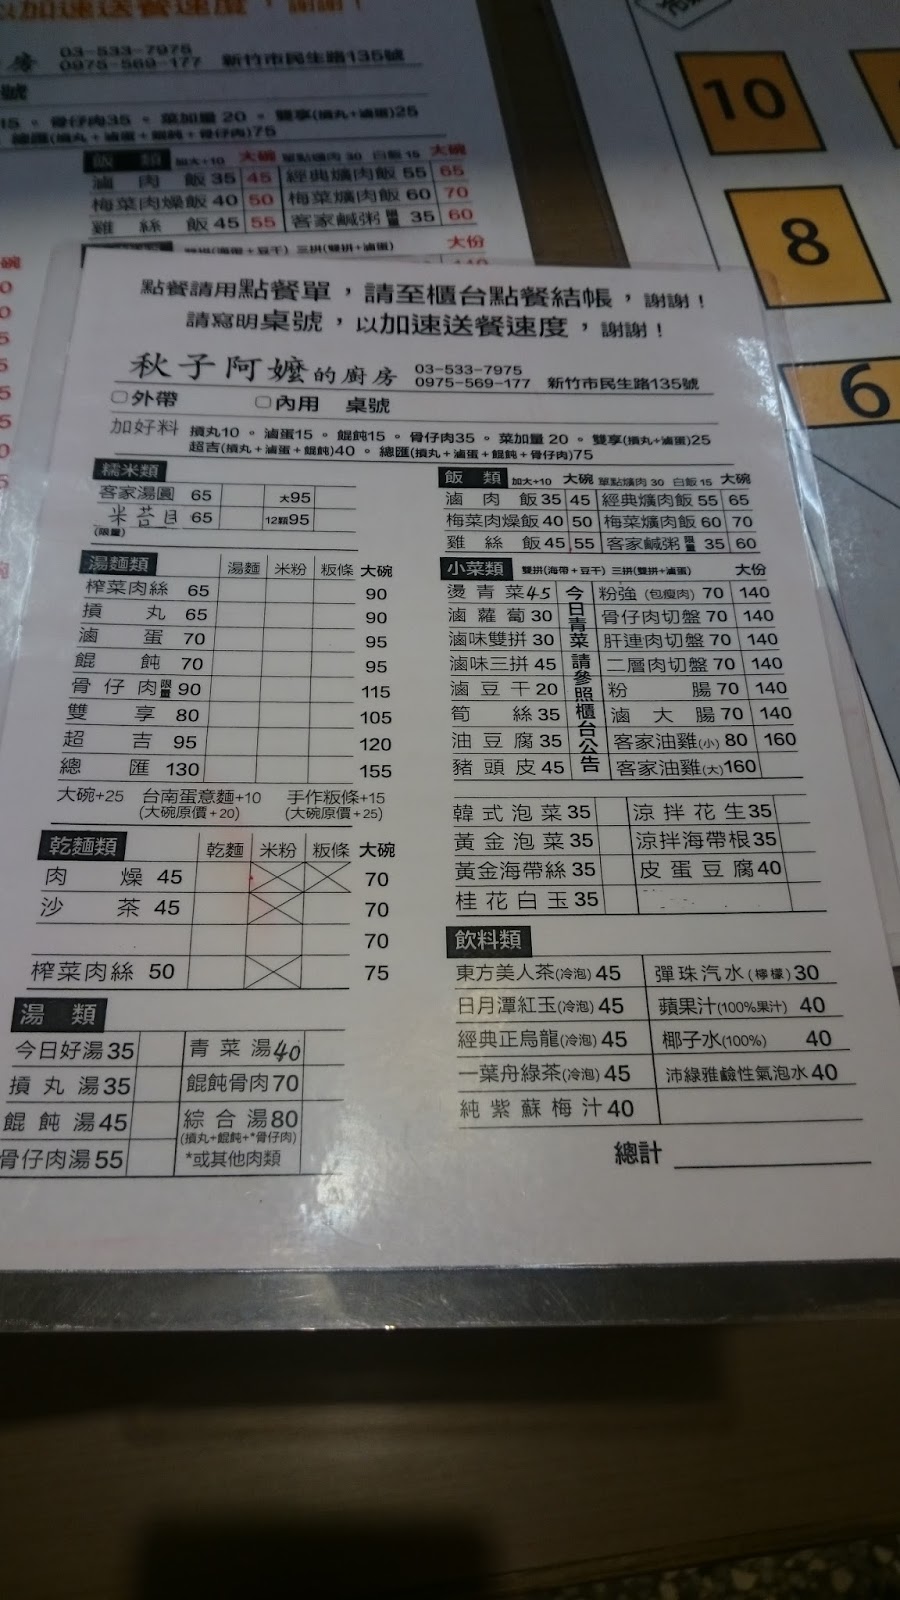 以加速送餐速度，謝謝！
房 03-533-7975
0975-569-177 新竹市民生路135號
號
15。骨仔肉35。菜加量20。雙享(摃丸+滷蛋)25
總匯(摃丸+滷蛋+餛飩+骨仔肉)75
飯類 加大+10 大碗 單點爌肉30 白飯15 大碗
滷肉飯35 45 經典爌肉飯55 65
梅菜肉燥飯40 50 梅菜爌肉飯60 70
雞絲飯45 55 客家鹹粥限量35 60
雙拼(海帶+豆干) 三拼(雙拼+滷蛋) 大份
10
8
6
點餐請用點餐單，請至櫃台點餐結帳，謝謝！
請寫明桌號，以加速送餐速度，謝謝！
秋子阿嬤的廚房 03-533-7975
0975-569-177 新竹市民生路135號
○外帶 ○內用 桌號
加好料 摃丸10。滷蛋15。餛飩15。骨仔肉35。菜加量20。雙享(摃丸+滷蛋)25
超吉(摃丸+滷蛋+餛飩)40。總匯(摃丸+滷蛋+餛飩+骨仔肉)75
糯米類
客家湯圓 65 大95
米苔目 65 12顆95
(限量)
湯麵類 湯麵 米粉 粄條 大碗
榨菜肉絲 65 90
摃丸 65 90
滷蛋 70 95
餛飩 70 95
骨仔肉限量 90 115
雙享 80 105
超吉 95 120
總匯 130 155
大碗+25 台南蛋意麵+10 手作粄條+15
(大碗原價+20) (大碗原價+25)
乾麵類 乾麵 米粉 粄條 大碗
肉燥 45 70
沙茶 45 70
70
榨菜肉絲 50 75
湯類
今日好湯35 青菜湯40
摃丸湯35 餛飩骨肉70
餛飩湯45 綜合湯80
(摃丸+餛飩+*骨仔肉)
骨仔肉湯55 *或其他肉類
飯類 加大+10 大碗 單點爌肉30 白飯15 大碗
滷肉飯35 45 經典爌肉飯55 65
梅菜肉燥飯40 50 梅菜爌肉飯60 70
雞絲飯45 55 客家鹹粥限量35 60
小菜類 雙拼(海帶+豆干) 三拼(雙拼+滷蛋) 大份
燙青菜45 粉強(包瘦肉)70 140
滷蘿蔔30 骨仔肉切盤70 140
滷味雙拼30 肝連肉切盤70 140
滷味三拼45 二層肉切盤70 140
滷豆干20 粉腸70 140
筍絲35 滷大腸70 140
油豆腐35 客家油雞(小)80 160
豬頭皮45 客家油雞(大)160
今日青菜請參照櫃台公告
韓式泡菜35 涼拌花生35
黃金泡菜35 涼拌海帶根35
黃金海帶絲35 皮蛋豆腐40
桂花白玉35
飲料類
東方美人茶(冷泡)45 彈珠汽水(檸檬)30
日月潭紅玉(冷泡)45 蘋果汁(100%果汁)40
經典正烏龍(冷泡)45 椰子水(100%)40
一葉舟綠茶(冷泡)45 沛綠雅鹼性氣泡水40
純紫蘇梅汁40
總計